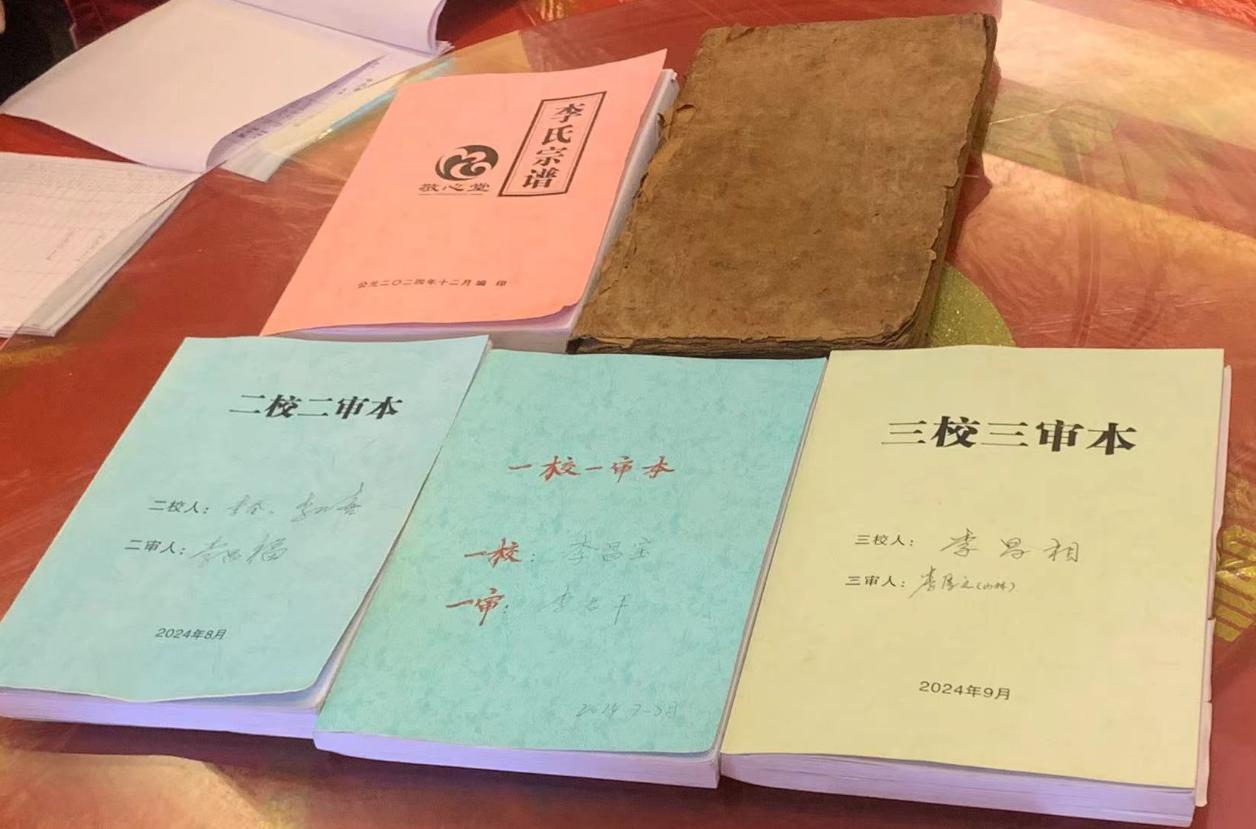 李氏宗谱
敬心堂
公元二〇二四年十二月 编 印
二校二审本
二校人：
二审人：李昌福
2024年8月
一校一审本
一校：李昌宝
一审：李
三校三审本
三校人：李昌相
三审人：李
2024年9月